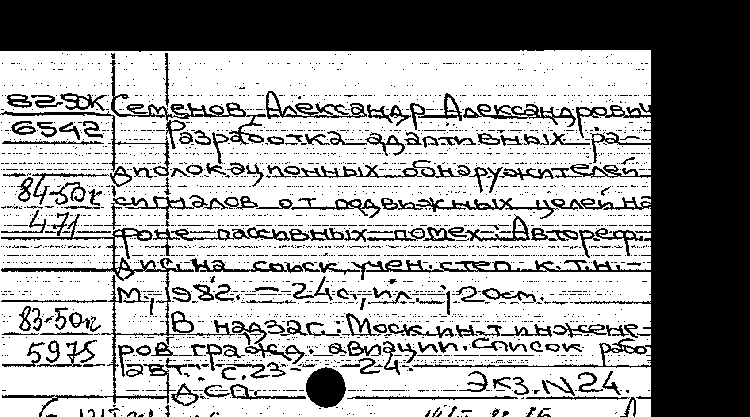 82-50К Семенов, Александр Александрович
6542 Разработка адаптивных ра-
диолокационных обнаружителей
84-50к сигналов от подвижных целей на
471 фоне пассивных помех: Автореф.
дис. на соиск. учен. степ. к.т.н. -
М., 1982. - 24 с., ил.; 20 см.
83-50к В надзаг.: Моск. ин-т инжене-
5975 ров гражд. авиации. Список работ
авт.: с. 23-24.
ДСП. Экз. N 24.